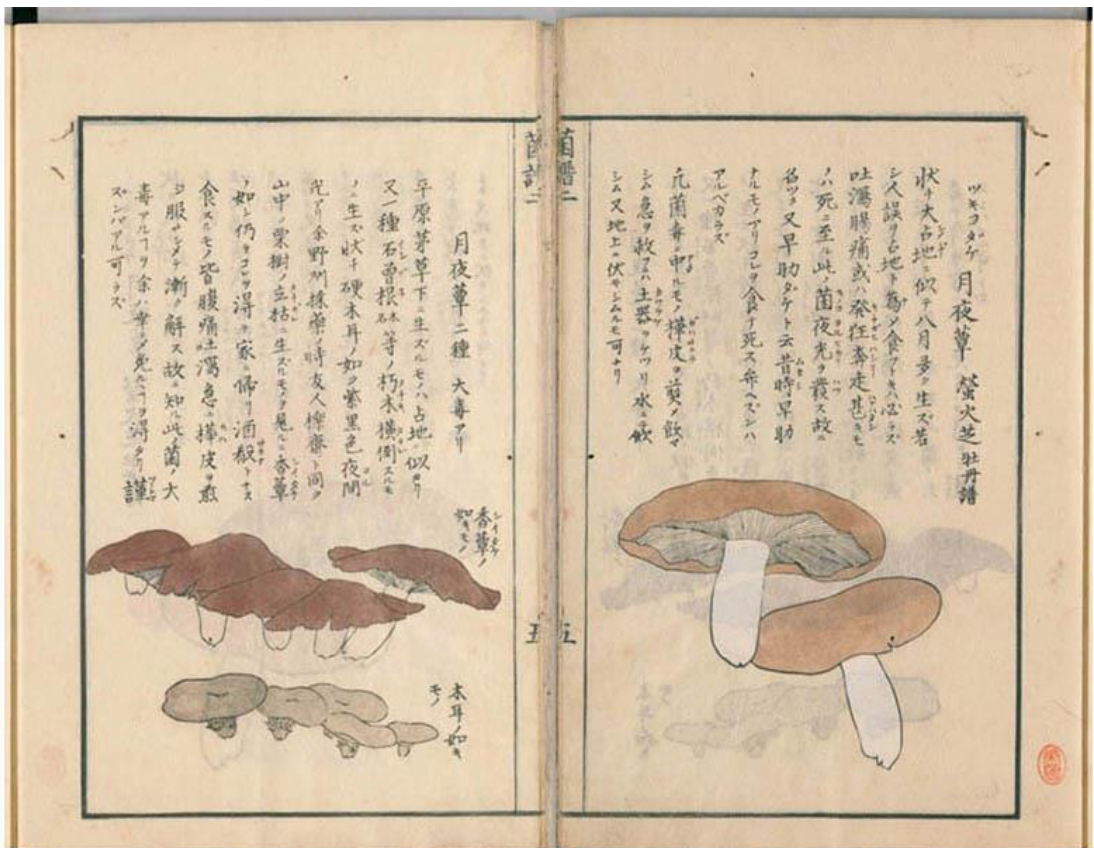 ツキヨダケ 月夜蕈 螢火芝 牡丹譜
状チ大占地ニ似テ八月多ク生ズ若
シ人誤リ占地ト為シ食フトキハ必ラズ
吐瀉腸痛或ハ発狂奔走甚キモ
ノハ死ニ至ル此菌夜光ヲ發ス故ニ
名ヅク又早助ダケト云昔時早助
ナルモノアリコレヲ食テ死ス弁ヘズンハ
アルベカラズ
凡菌毒ニ中ルモノ樺皮ヲ煎メ飲マ
シム急ヲ救フハ土器ヲケヅリ水ニテ飲
シム又地上ニ伏サシムルモ可ナリ
菌譜二
五
菌譜二
五
月夜蕈二種 大毒アリ
平原茅草下ニ生ズルモノハ占地ニ似タリ
又一種石曽根木等ノ朽木横倒スルモ
ノニ生ズ状チ硬木耳ノ如ク紫黒色夜間
光アリ余野州採藥ノ時友人櫟齋ト同ク
山中ノ栗樹ノ立枯ニ生ズルモノヲ見ル香蕈
ノ如シ仍テコレヲ得テ家ニ帰リ酒殽トナス
食スルモノ皆腹痛吐瀉急ニ樺皮ヲ煎
ジ服サシメテ漸ク解ス故ニ知ル此ノ菌ノ大
毒アルヿヲ余ハ幸ヲ免ルヿヲ得タリ謹
ズンバアル可ラズ
香蕈ノ
如キモノ
木耳ノ如キ
モノ